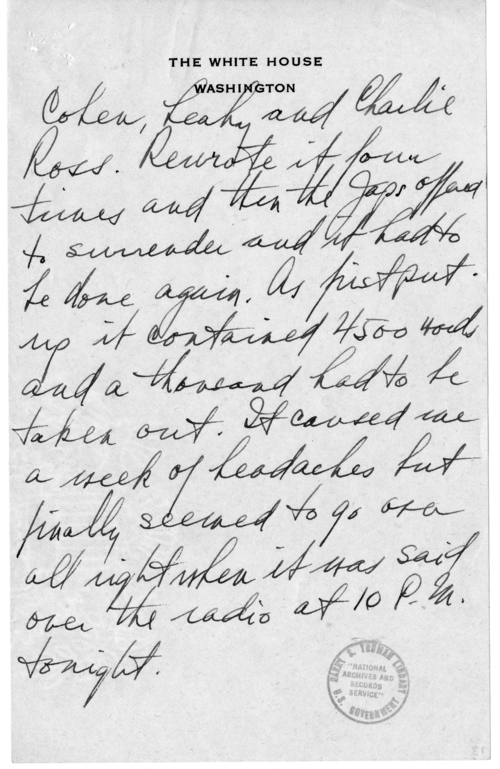 THE WHITE HOUSE
WASHINGTON
Cohen, Leahy and Charlie
Ross. Rewrote it four
times and then the Japs offered
to surrender and it had to
be done again. As first put
up it contained 4500 words
and a thousand had to be
taken out. It caused me
a week of headaches but
finally seemed to go over
all right when it was said
over the radio at 10 P.M.
tonight.
HARRY S. TRUMAN LIBRARY
"NATIONAL
ARCHIVES AND
RECORDS
SERVICE"
U.S. GOVERNMENT